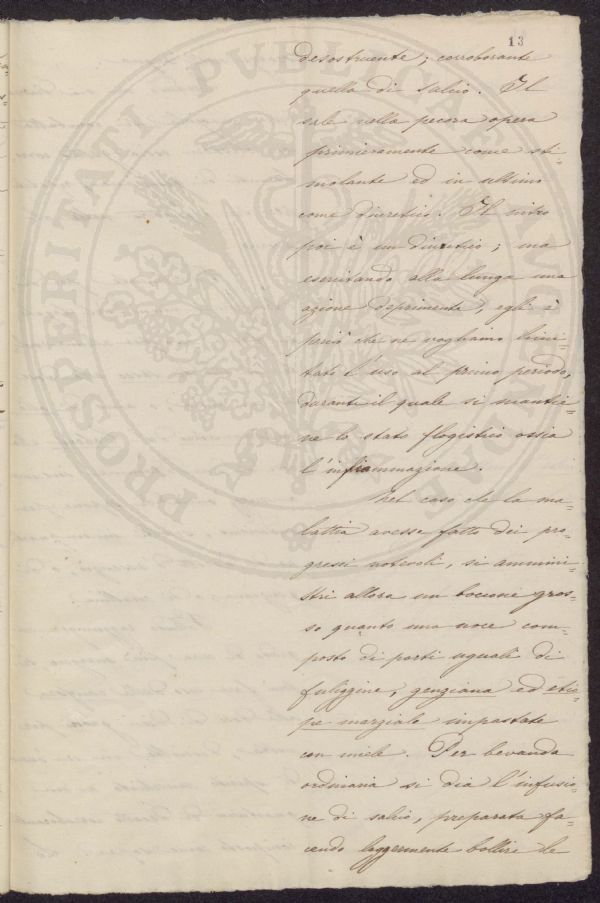 13
desostruente; corroborante
quella di salvio. Il
sale nella pecora opera
primieramente come sti=
molante ed in ultimo
come diuretico. Il nitro
poi è un diuretico; ma
esercitando alla lunga una
azione deprimente, egli è
perciò che ne vogliamo limi=
tato l'uso al primo periodo,
durante il quale si mantie=
ne lo stato flogistico ossia
l'infiammazione.
Nel caso che la ma=
lattia avesse fatto dei pro=
gressi notevoli, si ammini=
stri allora un bocione gros=
so quanto una noce com=
posto di parti uguali di
fuliggine, genziana ed etio=
pe marziale impastate
con miele. Per bevanda
ordinaria si dia l'infusio=
ne di salvio, preparata fa=
cendo leggermente bollire le
PROSPERITATI PVBLICAE AVGENDAE